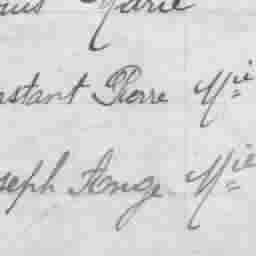 ouis Marie
nstant Pierre Mie
seph Ange Mie